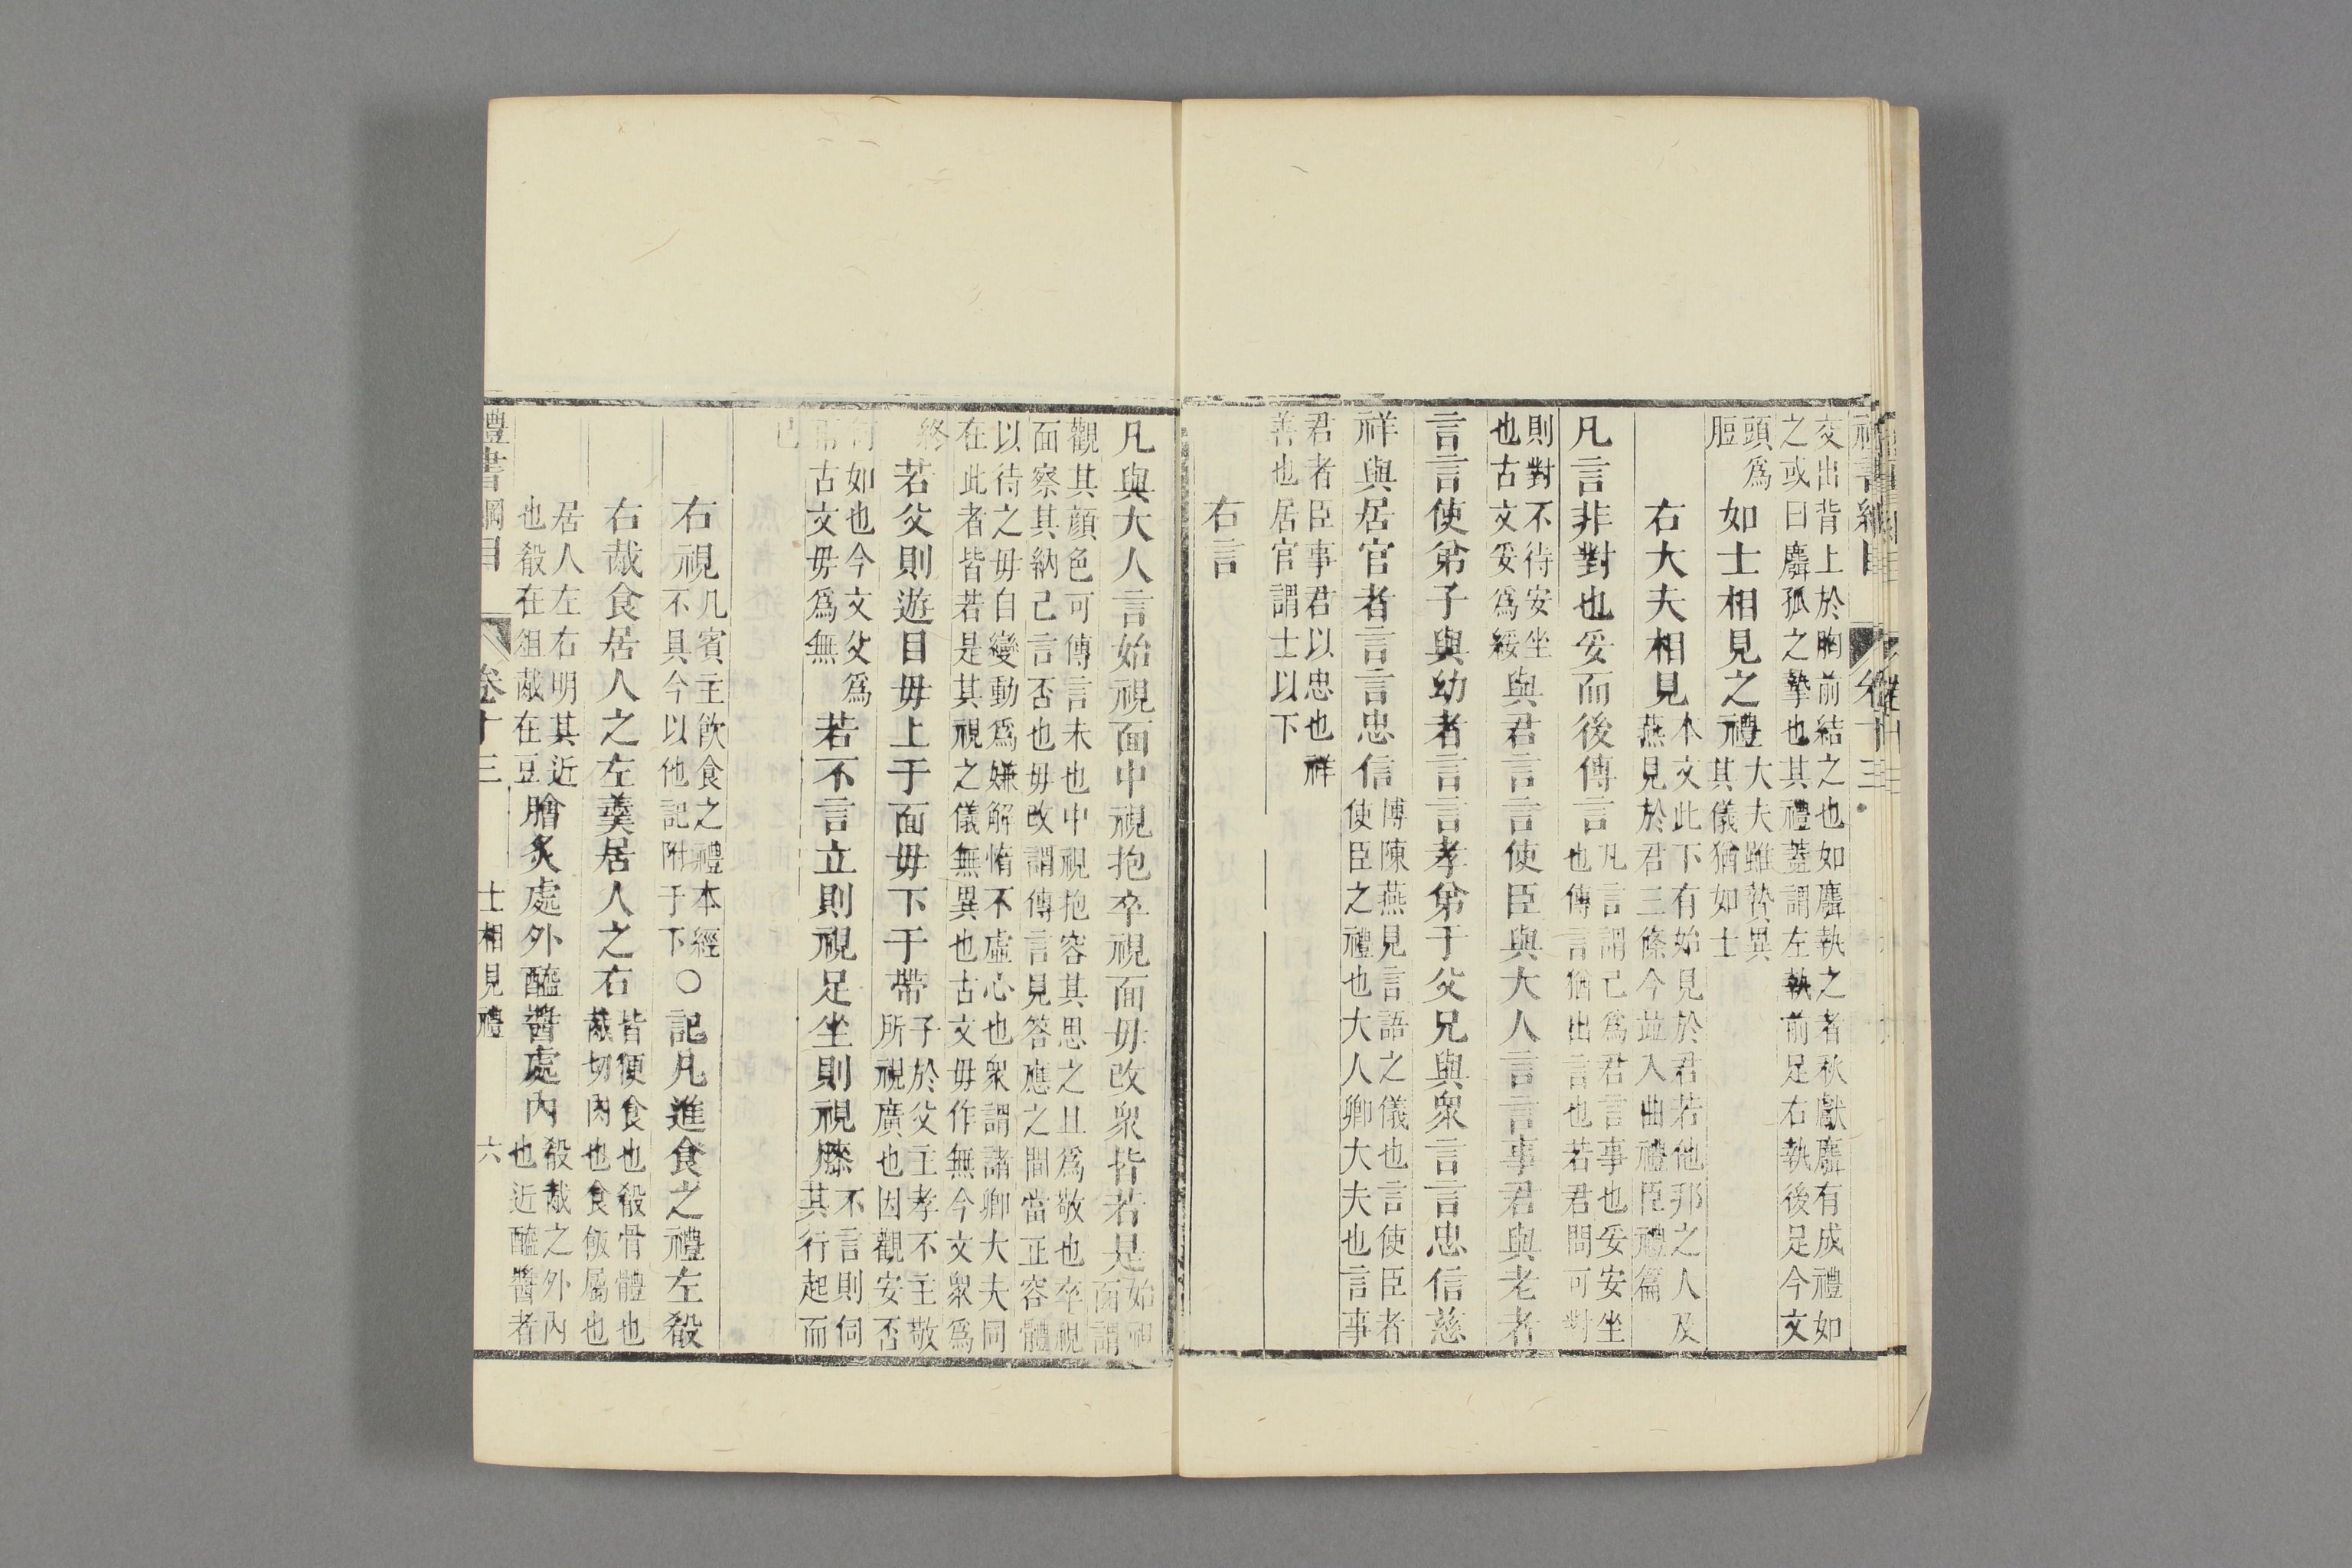 交出背上於胸前結之也如麛執之者秋獻麛有成禮如
之或曰麛孤之摯也其禮蓋謂左執前足右執後足今文
頭爲
脰
如士相見之禮
大夫雖摯異
其儀猶如士
右大夫相見
本文此下有始見於君若他邦之人及
燕見於君三條今並入曲禮臣禮篇
凡言非對也妥而後傳言
凡言謂己爲君言事也妥安坐
也傳言猶出言也若君問可對
則對不待安坐
也古文妥爲綏
與君言言使臣與大人言言事君與老者
言言使弟子與幼者言言孝弟于父兄與衆言言忠信慈
祥與居官者言言忠信
博陳燕見言語之儀也言使臣者
使臣之禮也大人卿大夫也言事
君者臣事君以忠也祥
善也居官謂士以下
右言
凡與大人言始視面中視抱卒視面毋改衆皆若是
始視
面謂
觀其顔色可傳言未也中視抱容其思之且爲敬也卒視
面察其納己言否也毋改謂傳言見答應之間當正容體
以待之毋自變動爲嫌解惰不虛心也衆謂諸卿大夫同
在此者皆若是其視之儀無異也古文毋作無今文衆爲
終
若父則遊目毋上于面毋下于帶
子於父主孝不主敬
所視廣也因觀安否
何如也今文父爲
甫古文毋爲無
若不言立則視足坐則視膝
不言則伺
其行起而
已
右視
凡賓主飲食之禮本經
不具今以他記附于下
○記凡進食之禮左殽
右胾食居人之左羹居人之右
皆便食也殽骨體也
胾切肉也食飯屬也
居人左右明其近
也殽在俎胾在豆
膾炙處外醯醬處內
殽胾之外內
也近醯醬者
禮書綱目
卷十三
士相見禮
六